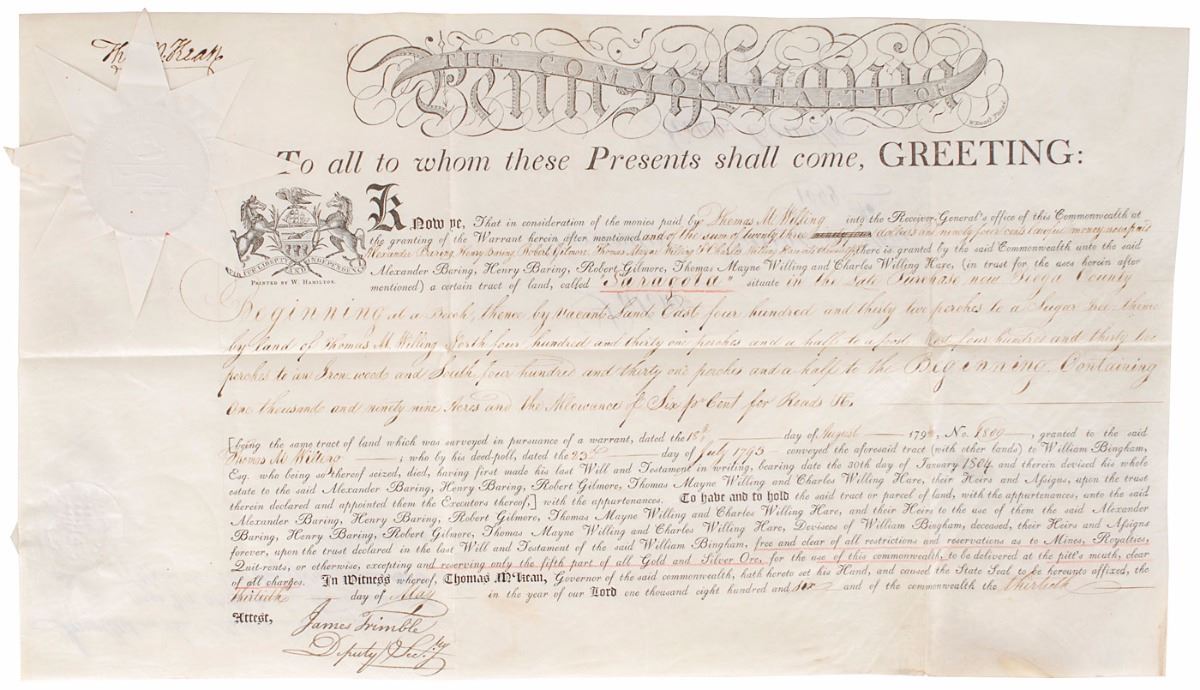 Tho M:Kean
THE COMMONWEALTH OF
Pennsylvania
To all to whom these Presents shall come, GREETING:
Know ye, That in consideration of the monies paid by Thomas M. Willing into the Receiver-General's office of this Commonwealth at
the granting of the Warrant herein after mentioned and of the sum of twenty three dollars and ninety four cents lawful money now paid
Alexander Baring, Henry Baring, Robert Gilmore, Thomas Mayne Willing & Charles Willing Hare there is granted by the said Commonwealth unto the said
Alexander Baring, Henry Baring, Robert Gilmore, Thomas Mayne Willing and Charles Willing Hare, (in trust for the uses herein after
mentioned) a certain tract of land, called "Saragota" situate in the late Purchase now Tioga County
VIRTUE LIBERTY AND INDEPENDENCE
PRINTED BY W. HAMILTON.
Beginning at a Beech, thence by vacant Land East four hundred and thirty two perches to a Sugar tree thence
by land of Thomas M. Willing North four hundred and thirty one perches and a half to a post West four hundred and thirty two
perches to an Iron wood and South four hundred and thirty one perches and a half to the Beginning Containing
One thousand and ninety nine Acres and the Allowance of Six pr Cent for Roads &c.
[being the same tract of land which was surveyed in pursuance of a warrant, dated the 18th day of August 179 No. 1809, granted to the said
Thomas M. Willing; who by his deed-poll, dated the 23d day of July 1793 conveyed the aforesaid tract (with other lands) to William Bingham,
Esq. who being so thereof seized, died, having first made his last Will and Testament in writing, bearing date the 30th day of January 1804 and therein devised his whole
estate to the said Alexander Baring, Henry Baring, Robert Gilmore, Thomas Mayne Willing and Charles Willing Hare, their Heirs and Assigns, upon the trust
therein declared and appointed them the Executors thereof,] with the appurtenances. To have and to hold the said tract or parcel of land, with the appurtenances, unto the said
Alexander Baring, Henry Baring, Robert Gilmore, Thomas Mayne Willing and Charles Willing Hare, and their Heirs to the use of them the said Alexander
Baring, Henry Baring, Robert Gilmore, Thomas Mayne Willing and Charles Willing Hare, Devisees of William Bingham, deceased, their Heirs and Assigns
forever, upon the trust declared in the last Will and Testament of the said William Bingham, free and clear of all restrictions and reservations as to Mines, Royalties,
Quit-rents, or otherwise, excepting and reserving only the fifth part of all Gold and Silver Ore, for the use of this commonwealth, to be delivered at the pitt's mouth, clear
of all charges. In Witness whereof, Thomas M'Kean, Governor of the said commonwealth, hath hereto set his Hand, and caused the State Seal to be hereunto affixed, the
thirtieth day of May in the year of our Lord one thousand eight hundred and six and of the commonwealth the thirtieth
Attest,
James Trimble
Deputy Secty